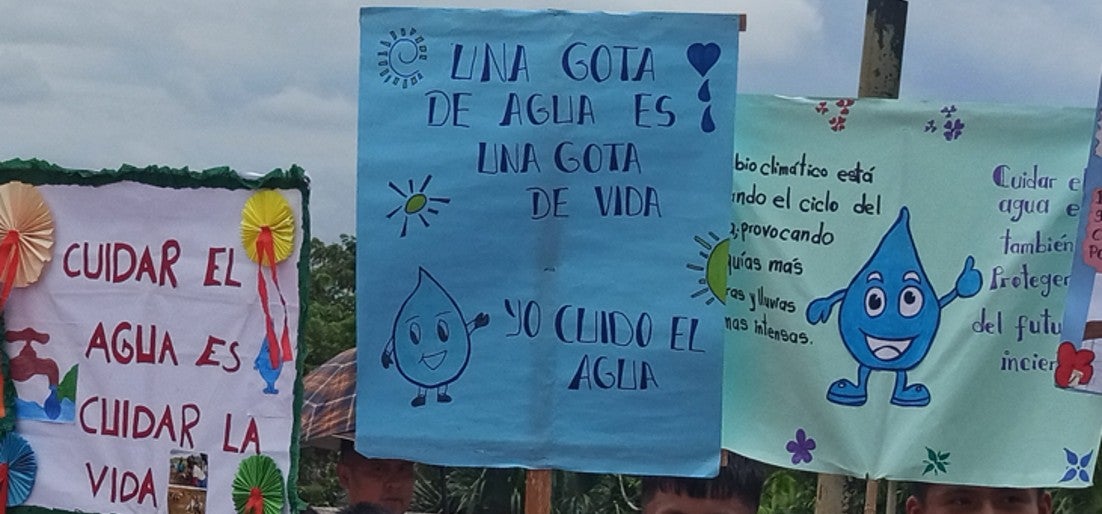 CUIDAR EL
AGUA ES
CUIDAR LA
VIDA
UNA GOTA
DE AGUA ES
UNA GOTA
DE VIDA
YO CUIDO EL
AGUA
bio climático está
ndo el ciclo del
a, provocando
quías más
ras y lluvias
mas intensas.
Cuidar e
agua e
también
Proteger
del futu
incier